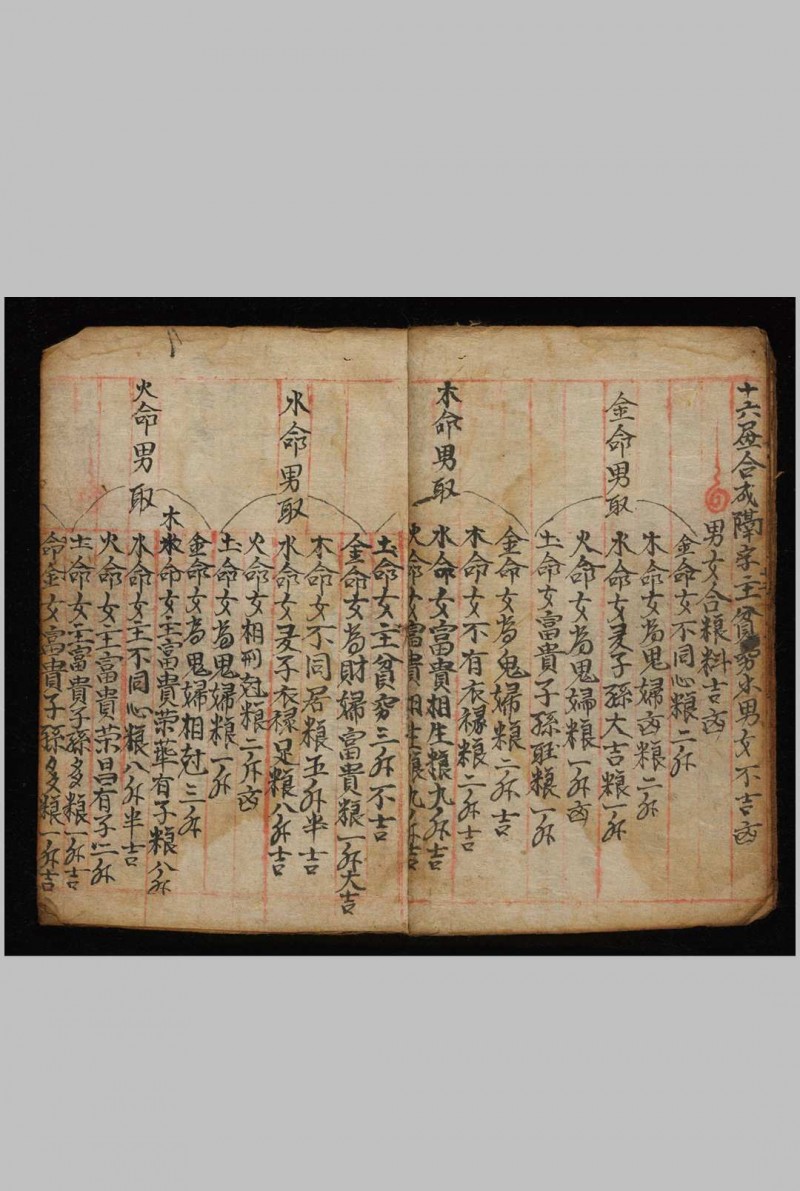 十六屋合成隔字主貧穷末男女不吉凶
男女合粮料吉凶
金命男取
金命女不同心粮二升
木命女為鬼婦凶粮二升
水命女夛子孫大吉粮一升
火命女為鬼婦粮一升凶
土命女富貴子孫旺粮一升
木命男取
金命女為鬼婦粮二升吉
木命女不有衣禄粮二升吉
水命女富貴相生粮九升吉
火命女富貴相生粮九升吉
土命女主貧穷三升不吉
水命男取
金命女為財婦富貴粮一升大吉
木命女不同居粮五升半吉
水命女夛子衣禄足粮八升吉
火命女相刑尅粮二升凶
土命女為鬼婦粮一升
火命男取
金命女為鬼婦相尅三升
木命女主富貴荣華有子粮八升
水命女主不同心粮八升半吉
火命女主富貴荣昌有子二升
土命女主富貴子孫多粮一升吉
命金女富貴子孫多粮一升吉